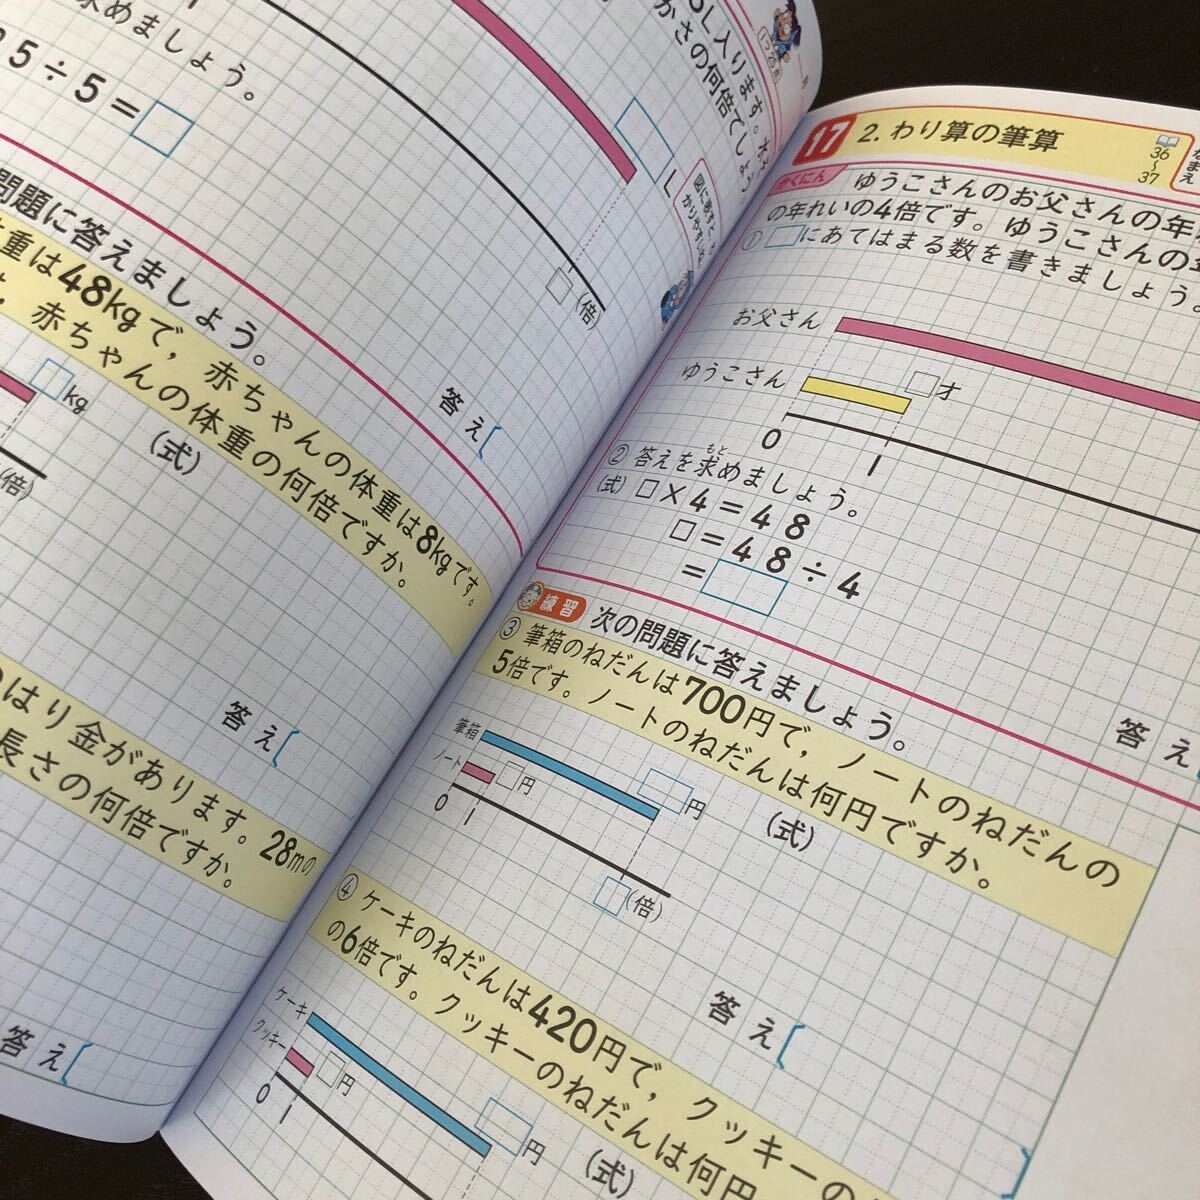 5L入ります。水
かさの何倍でしょう
求めましょう。
5÷5=
L
(倍)
図にあらわすと
わかりやすいね
問題に答えましょう。
体重は48kgで，赤ちゃんの体重は8kgです。
赤ちゃんの体重の何倍ですか。
kg
(倍)
(式)
答え
のはり金があります。28mの
長さの何倍ですか。
答え
答え
17
2. わり算の筆算
36
〜
37
なまえ
かくにん
ゆうこさんのお父さんの年
の年れいの4倍です。ゆうこさんの
① □にあてはまる数を書きましょう。
お父さん
ゆうこさん
□才
0
1
② 答えを求めましょう。
もと
(式) □×4=48
□=48÷4
=
答え
練習
次の問題に答えましょう。
③ 筆箱のねだんは700円で，ノートのねだんの
5倍です。ノートのねだんは何円ですか。
筆箱
ノート
□円
円
0
1
□(倍)
(式)
答え
④ ケーキのねだんは420円で，クッキーの
の6倍です。クッキーのねだんは何円
ケーキ
クッキー
□円
円
0
1
(式)